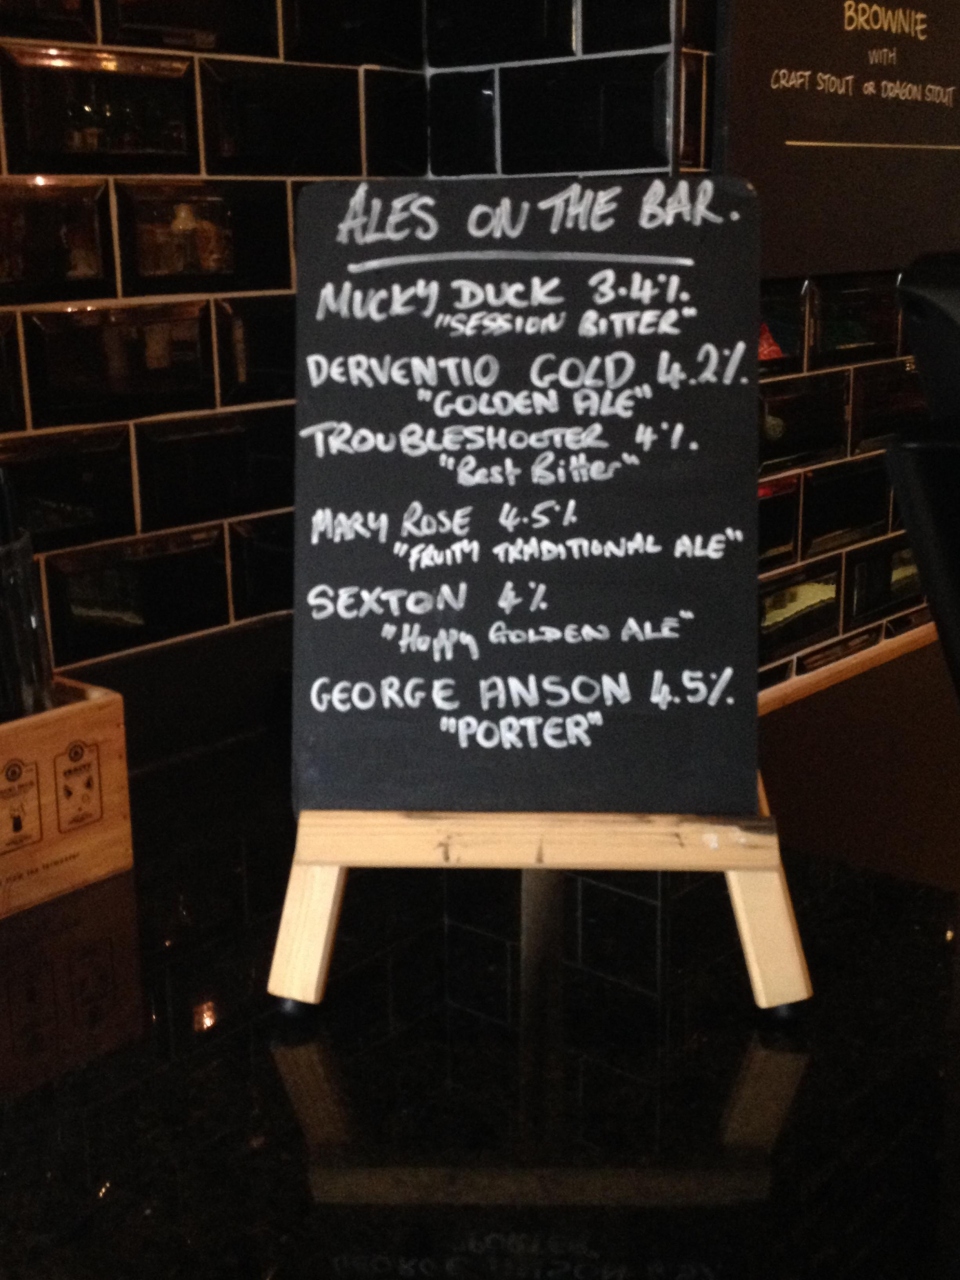 BROWNIE
WITH
CRAFT STOUT OR DRAGON STOUT
ALES ON THE BAR.
MUCKY DUCK 3.4%.
"SESSION BITTER"
DERVENTIO GOLD 4.2%.
"GOLDEN ALE"
TROUBLESHOOTER 4%.
"Best Bitter"
MARY ROSE 4.5%
"FRUITY TRADITIONAL ALE"
SEXTON 4%
"Hoppy GOLDEN ALE"
GEORGE ANSON 4.5%
"PORTER"